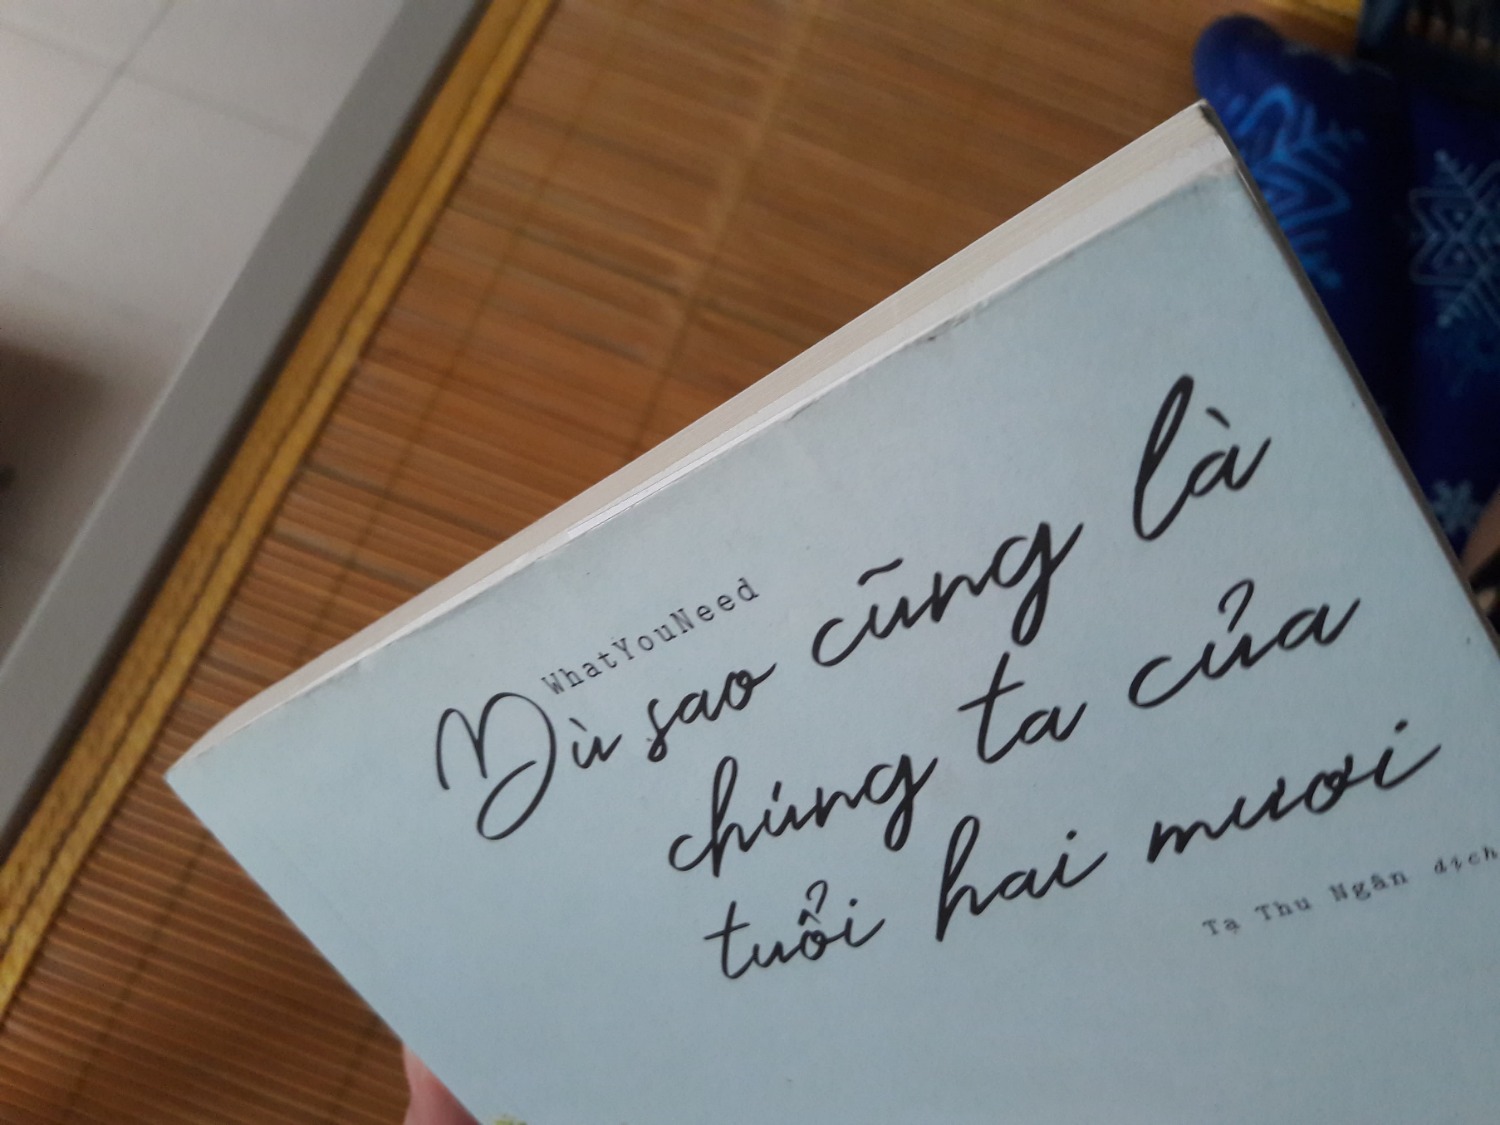 WhatYouNeed
Dù sao cũng là
chúng ta của
tuổi hai mươi
Tạ Thu Ngân dịch